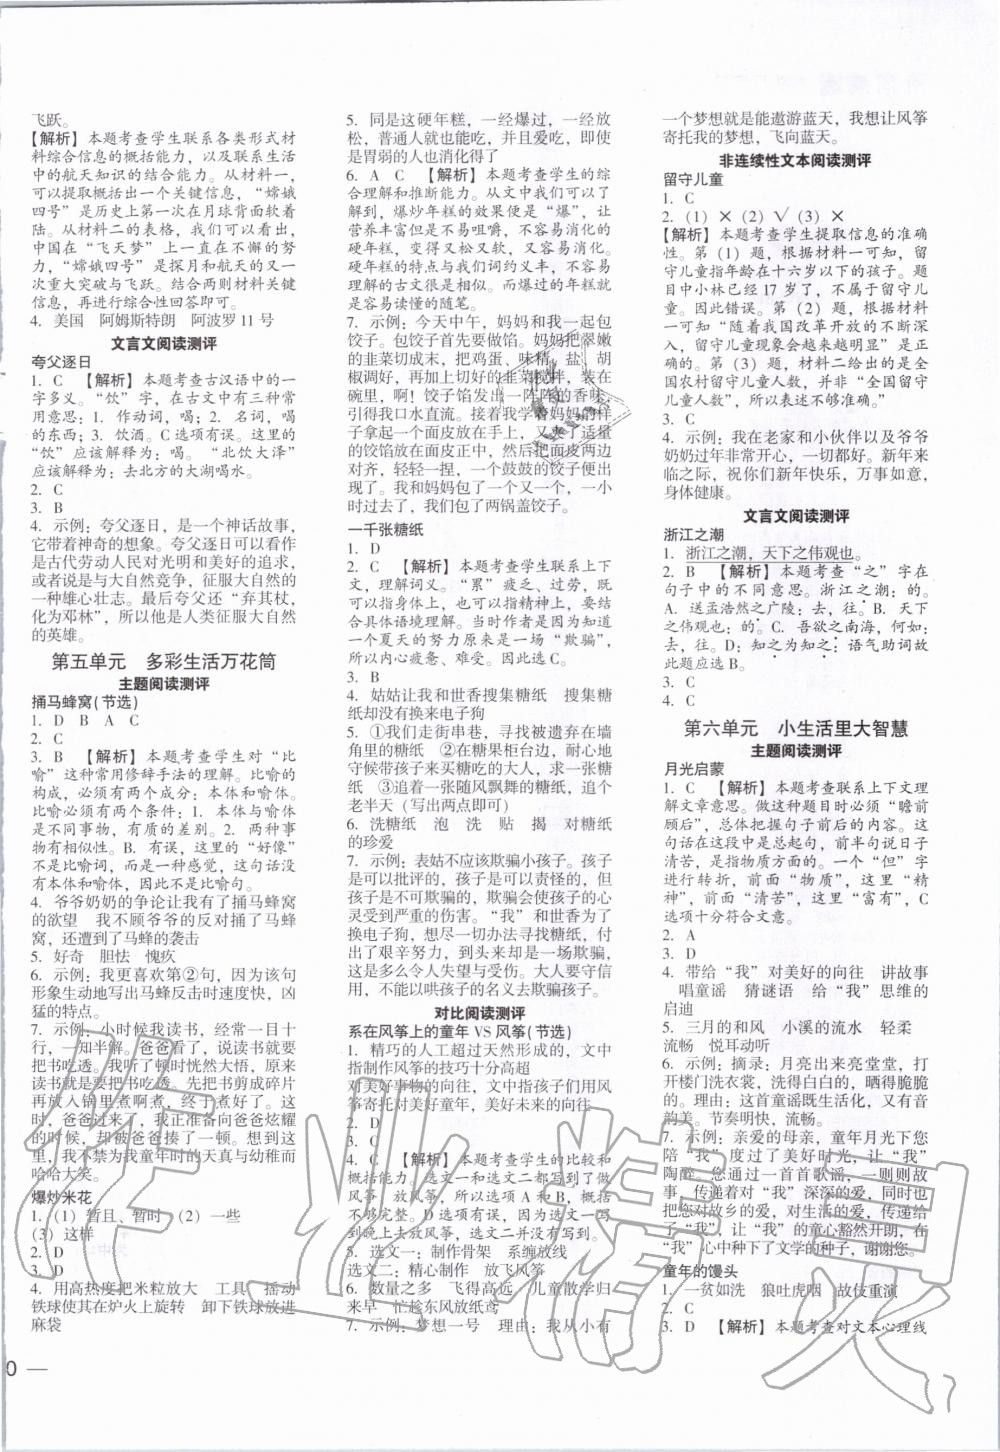 飞跃。
【解析】本题考查学生联系各类形式材
料综合信息的概括能力，以及联系生活
中的航天知识的结合能力。从材料一，
可以提取概括出一个关键信息，“嫦娥
四号”是历史上第一次在月球背面软着
陆。从材料二的表述，我们可以看出，
中国在“飞天梦”上一直在不懈的努
力，“嫦娥四号”是探月和航天的又一
次重大突破与飞跃。结合两则材料关键
信息，再进行综合性回答即可。
4. 美国 阿姆斯特朗 阿波罗11号
文言文阅读测评
夸父逐日
1. C 【解析】本题考查古汉语中的一
字多义。“饮”字，在古文中有三种常
用意思：1. 作动词，喝；2. 名词，喝
的东西；3. 饮酒。C选项有误。这里的
“饮”应该解释为：喝。“北饮大泽”
应该解释为：去北方的大湖喝水。
2. C
3. B
4. 示例：夸父逐日，是一个神话故事，
它带着神奇的想象。夸父逐日可以看作
是古代劳动人民对光明和美好的追求，
或者说是与大自然竞争，征服大自然的
一种雄心壮志。最后夸父还“弃其杖，
化为邓林”，所以他是人类征服大自然
的英雄。
第五单元 多彩生活万花筒
主题阅读测评
捅马蜂窝(节选)
1. D B A C
2. C
3. B 【解析】本题考查学生对“比
喻”这种常用修辞手法的理解。比喻的
构成，必须有两个成分：本体和喻体。
比喻必须有两个条件：1. 本体与喻体
是不同事物，有质的差别。2. 两种事
物有相似性。B. 有误，这里的“好像”
不是比喻词，而是一种感觉，这句话没
有本体和喻体，因此不是比喻句。
4. 爷爷奶奶的争论让我有了捅马蜂窝
的欲望 我不顾爷爷的反对捅了马蜂
窝，还遭到了马蜂的袭击
5. 好奇 胆怯 愧疚
6. 示例：我更喜欢第②句，因为该句
形象生动地写出马蜂反击时速度快，凶
猛的特点。
7. 示例：小时候我读书，经常一目十
行，一知半解。爸爸看了，说读书就要
把书吃透。我听了顿时恍然大悟，原来
读书就是要把书吃透。先把书剪成碎片
再放入锅里煮啊煮，终于煮好了。这
时，爸爸过来了，我正准备向爸爸炫耀
的时候，却被爸爸揍了一顿。想到这
里，我不禁为我童年时的天真与幼稚而
哈哈大笑。
爆炒米花
1. (1) 暂且、暂时 (2) 一些
(3) 这样
2. D
3. D
4. 用高热度把米粒放大 工具 摇动
铁球使其在炉火上旋转 卸下铁球放进
麻袋
5. 同是这硬年糕，一经爆过，一经放
松，普通人都能吃，并且爱吃，即使
是胃弱的人也消化得了
6. A C 【解析】本题考查学生的综
合理解和推断能力。从文中我们可以了
解到，爆炒年糕的效果便是“爆”，让
营养丰富但是不易咀嚼，不易消化的
硬年糕，变得又松又软，又易消化。
硬年糕的特点与我们词约义丰，不易
读懂的古文很是相似。爆过的年糕就
是容易读懂的随笔。
7. 示例：今天中午，妈妈和我一起包
饺子。包饺子首先要做馅。妈妈把翠嫩
的韭菜切成末，把鸡蛋、味精、盐、胡
椒调好，再加到切好的韭菜搅拌，装在
碗里，啊！饺子馅发出一阵阵的香味，
引得我口水直流。接着我学着妈妈的样
子拿起一个面皮放在左手，又夹了适量
的饺馅放在面皮正中，然后把面皮两边
对齐，轻轻一捏，一个鼓鼓的饺子便出
现了。我和妈妈包了一个又一个，一小
时过去了，我们包了两锅盖饺子。
一千张糖纸
1. D
2. C 【解析】本题考查学生联系上下
文，理解词义。“累”疲乏、过劳，既
可以指身体上，也可以指精神上。要结
合具体语境理解。当时作者是因为知道
一个夏天的努力原来是一场“欺骗”，
所以内心疲惫、难受。因此选C。
3. B
4. 姑姑让我和世香搜集糖纸 搜集糖
纸却没有换来电子狗
5. ①我们走街串巷，寻找被遗弃在墙
角里的糖纸 ②在糖果柜台边，耐心地
守候带孩子来买糖吃的大人，求一张糖
纸 ③追着一张随风飘舞的糖纸，追个
老半天（写出两点即可）
6. 洗糖纸 泡 洗 贴 揭 对糖纸
的珍爱
7. 示例：表姑不应该欺骗小孩子。孩子
是可以批评的，孩子是可以责怪的，但
孩子是不可欺骗的，欺骗会使孩子的心
灵受到严重的伤害。“我”和世香为了
换电子狗，想尽一切办法寻找糖纸，付
出了艰辛努力，到头来却是一场欺骗，
这是多么令人失望与受伤。大人要守信
用，不能以哄孩子的名义去欺骗孩子。
对比阅读测评
系在风筝上的童年 VS 风筝(节选)
1. 精巧的人工超过天然形成的，文中
指制作风筝的技巧十分高超
对美好事物的向往，文中指孩子们用风
筝寄托对美好童年，美好未来的向往
2. D
3. C
4. C 【解析】本题考查学生的比较和
概括能力。选文一和选文二都写到了做
风筝，放风筝，所以选项A和B，概括
不够完整。D选项有误，选文一没有写
到晚上放飞，选文二并没有写到。
5. 选文一：制作骨架 系缠放线
选文二：精心制作 放飞风筝
6. 数量之多 飞得高远 儿童散学归
来早 忙趁东风放纸鸢
7. 示例：梦想一号 理由：我从小有
一个梦想就是能遨游蓝天，我想让风筝
寄托我的梦想，飞向蓝天。
非连续性文本阅读测评
留守儿童
1. C
2. (1) × (2) √ (3) ×
【解析】本题考查学生提取信息的准确
性。第（1）题，根据材料一可知，留
守儿童指年龄在十六岁以下的孩子。题
目中小林已经17岁了，不属于留守儿
童。因此错误。第（2）题，根据材料
一可知“随着我国改革开放的不断深
入，留守儿童现象会越来越明显”是正
确的。第（3）题，材料二给出的是全
国农村留守儿童人数，并非“全国留守
儿童人数”，所以表述不够准确。”
3. C
4. 示例：我在老家和小伙伴以及爷爷
奶奶过年非常开心，一切都好。新年来
临之际，祝你们新年快乐，万事如意，
身体健康。
文言文阅读测评
浙江之潮
1. 浙江之潮，天下之伟观也。
2. B 【解析】本题考查“之”字在
句子中的不同意思。浙江之潮：的。
A. 送孟浩然之广陵：去，往。B. 天下
之伟观也：的。C. 吾欲之南海，何如：
去，往。D：知之为知之：语气助词故
此题应选B。
3. C
4. C
第六单元 小生活里大智慧
主题阅读测评
月光启蒙
1. C 【解析】本题考查联系上下文理
解文章意思。做这种题目必须“瞻前
顾后”，总体把握句子前后的内容。这
句话在这段中是总起句，前半句说日子
清苦，是指物质方面的。一个“但”字
进行转折，前面“物质”，这里“精
神”，前面“清苦”，这里“富有”，C
选项十分符合文意。
2. A
3. D
4. 带给“我”对美好的向往 讲故事
唱童谣 猜谜语 给“我”思维的
启迪
5. 三月的和风 小溪的流水 轻柔
流畅 悦耳动听
6. 示例：摘录：月亮出来亮堂堂，打
开楼门洗衣裳，洗得白白的，晒得脆脆
的。理由：这首童谣既生活化，又有音
韵美。节奏明快，流畅。
7. 示例：亲爱的母亲，童年月光下您
陪“我”度过了多少美好时光，让“我”
陶醉。您通过一首首歌谣，一则则故
事，传递着对“我”深深的爱，同时也
把您对故乡的爱，对生活的爱，传递给
了“我”，让“我”的童心豁然开朗，在
“我”心中种下了一颗文学的种子，谢谢您。
童年的馒头
1. 一贫如洗 狼吐虎咽 故伎重演
2. C
3. D 【解析】本题考查对文本心理线
0 —
作业精灵